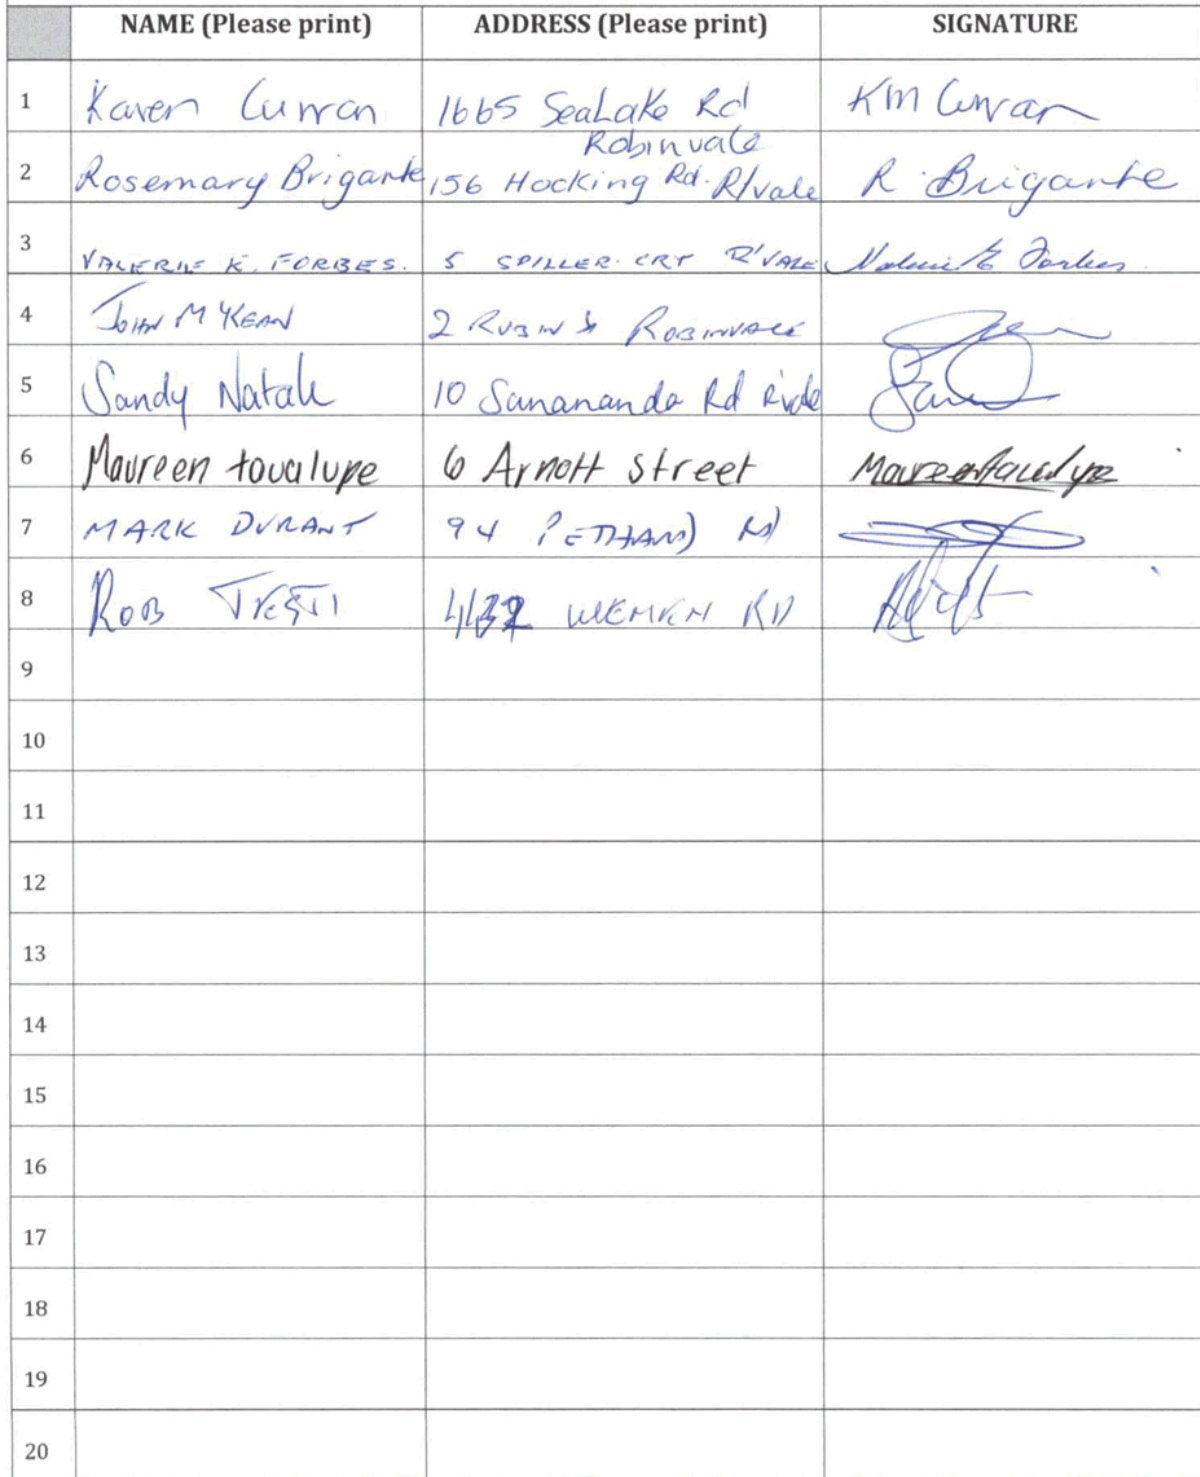 NAME (Please print) ADDRESS (Please print) SIGNATURE
1 Karen Curran 1665 SeaLake Rd KM Curran
Robinvale
2 Rosemary Brigante 156 Hocking Rd. R/vale R Brigante
3 VALERIE K. FORBES. 5 SPILLER CRT R'VALE Valerie K Forbes
4 JOHN MCKEAN 2 RUBIN ROBINVALE
5 Sandy Natale 10 Sanananda Rd R'vale
6 Maureen toualupe 6 Arnott street
7 MARK DURANT 94 RD
8 ROB WEMEN RD
9
10
11
12
13
14
15
16
17
18
19
20